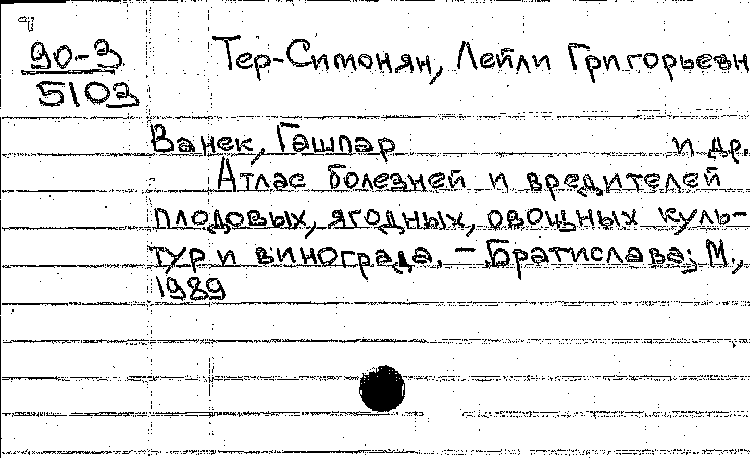 90-3
5103
Тер-Симонян, Лейли Григорьевн
Ванек, Гашпар и др.
Атлас болезней и вредителей
плодовых, ягодных, овощных куль-
тур и винограда. – Братислава; М.,
1989